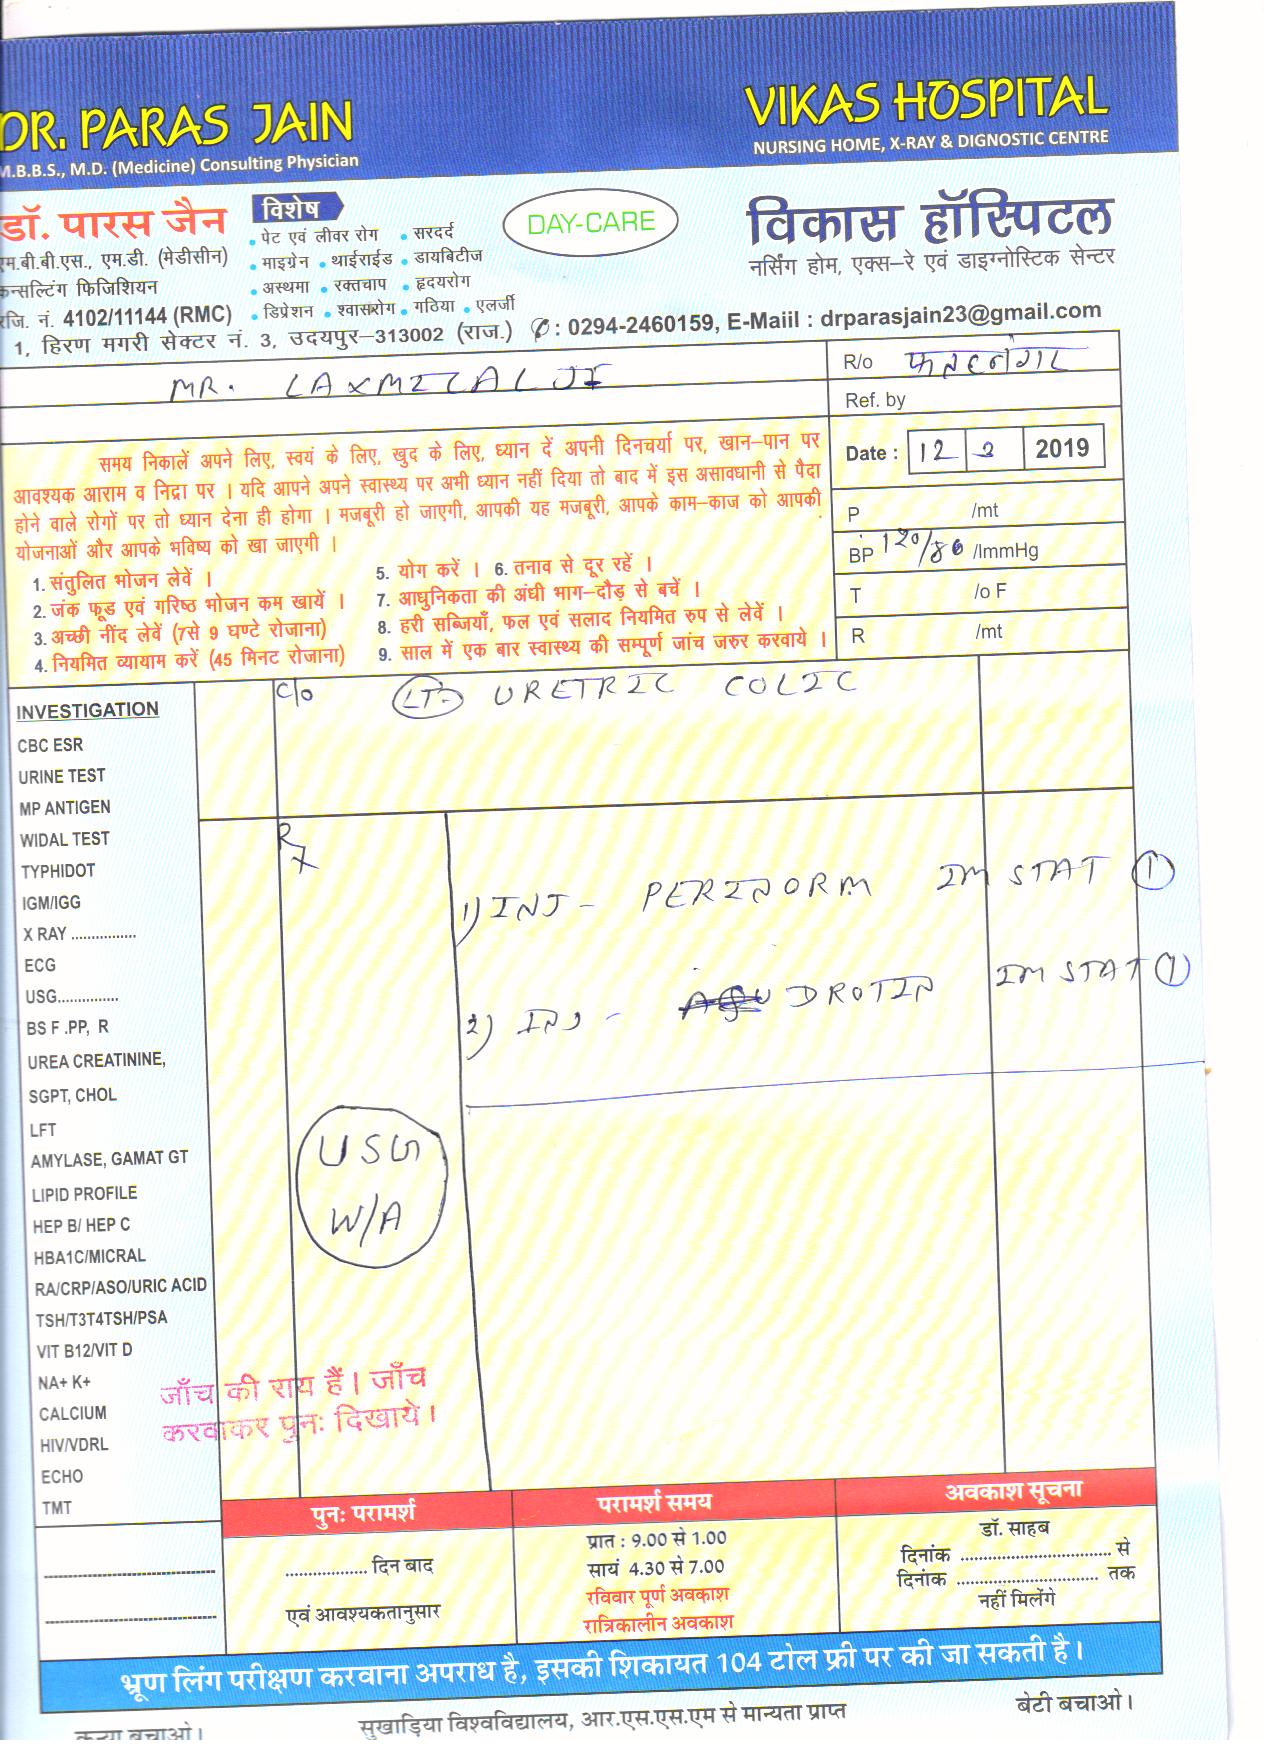 DR. PARAS JAIN
M.B.B.S., M.D. (Medicine) Consulting Physician
VIKAS HOSPITAL
NURSING HOME, X-RAY & DIGNOSTIC CENTRE
डॉ. पारस जैन
एम.बी.बी.एस., एम.डी. (मेडीसीन)
कन्सल्टिंग फिजिशियन
रजि. नं. 4102/11144 (RMC)
विशेष
• पेट एवं लीवर रोग • सरदर्द
• माइग्रेन • थाईराईड • डायबिटीज
• अस्थमा • रक्तचाप • हृदयरोग
• डिप्रेशन • श्वासरोग • गठिया • एलर्जी
DAY-CARE
विकास हॉस्पिटल
नर्सिंग होम, एक्स-रे एवं डाइग्नोस्टिक सेन्टर
1, हिरण मगरी सेक्टर नं. 3, उदयपुर-313002 (राज.) ✆: 0294-2460159, E-Maiil : drparasjain23@gmail.com
MR. LAXMILAL JI
R/o
Ref. by
Date : 12 2 2019
P /mt
BP 120/80 /lmmHg
T /o F
R /mt
समय निकालें अपने लिए, स्वयं के लिए, खुद के लिए, ध्यान दें अपनी दिनचर्या पर, खान-पान पर
आवश्यक आराम व निद्रा पर । यदि आपने अपने स्वास्थ्य पर अभी ध्यान नहीं दिया तो बाद में इस असावधानी से पैदा
होने वाले रोगों पर तो ध्यान देना ही होगा । मजबूरी हो जाएगी, आपकी यह मजबूरी, आपके काम-काज को आपकी
योजनाओं और आपके भविष्य को खा जाएगी ।
1. संतुलित भोजन लेवें ।
2. जंक फूड एवं गरिष्ठ भोजन कम खायें ।
3. अच्छी नींद लेवें (7से 9 घण्टे रोजाना)
4. नियमित व्यायाम करें (45 मिनट रोजाना)
5. योग करें । 6. तनाव से दूर रहें ।
7. आधुनिकता की अंधी भाग-दौड़ से बचें ।
8. हरी सब्जियाँ, फल एवं सलाद नियमित रुप से लेवें ।
9. साल में एक बार स्वास्थ्य की सम्पूर्ण जांच जरुर करवाये ।
C/o LT. URETRIC COLIC
Rx
1) INJ - PERINORM IM STAT (1)
2) INJ - DROTIN IM STAT (1)
USG
W/A
INVESTIGATION
CBC ESR
URINE TEST
MP ANTIGEN
WIDAL TEST
TYPHIDOT
IGM/IGG
X RAY ...............
ECG
USG..............
BS F .PP, R
UREA CREATININE,
SGPT, CHOL
LFT
AMYLASE, GAMAT GT
LIPID PROFILE
HEP B/ HEP C
HBA1C/MICRAL
RA/CRP/ASO/URIC ACID
TSH/T3T4TSH/PSA
VIT B12/VIT D
NA+ K+
CALCIUM
HIV/VDRL
ECHO
TMT
जाँच की राय हैं। जाँच
करवाकर पुनः दिखाये।
पुनः परामर्श
.................. दिन बाद
एवं आवश्यकतानुसार
परामर्श समय
प्रात : 9.00 से 1.00
सायं 4.30 से 7.00
रविवार पूर्ण अवकाश
रात्रिकालीन अवकाश
अवकाश सूचना
डॉ. साहब
दिनांक ................................ से
दिनांक .............................. तक
नहीं मिलेंगे
भ्रूण लिंग परीक्षण करवाना अपराध है, इसकी शिकायत 104 टोल फ्री पर की जा सकती है।
कन्या बचाओ।
सुखाड़िया विश्वविद्यालय, आर.एस.एस.एम से मान्यता प्राप्त
बेटी बचाओ।